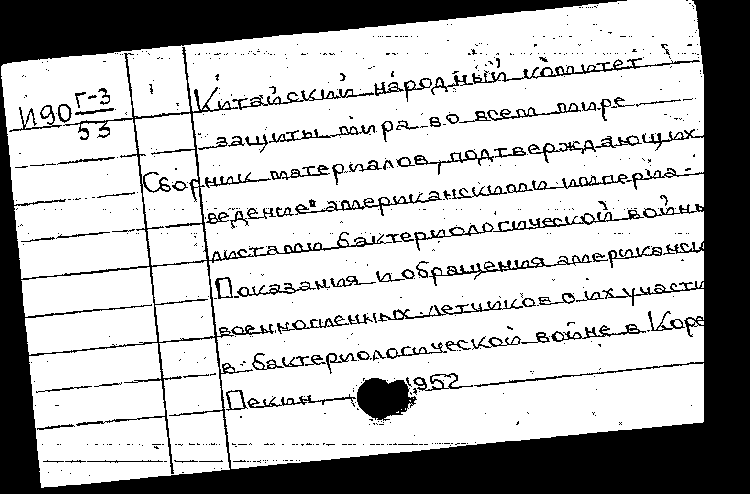 И90 Г-3
53
Китайский народный комитет
защиты мира во всем мире
Сборник материалов, подтверждающих
ведение американскими импери-
листами бактериологической войны
Показания и обращения американски
военнопленных летчиков о их участи
в бактериологической войне в Коре
Пекин, 1952